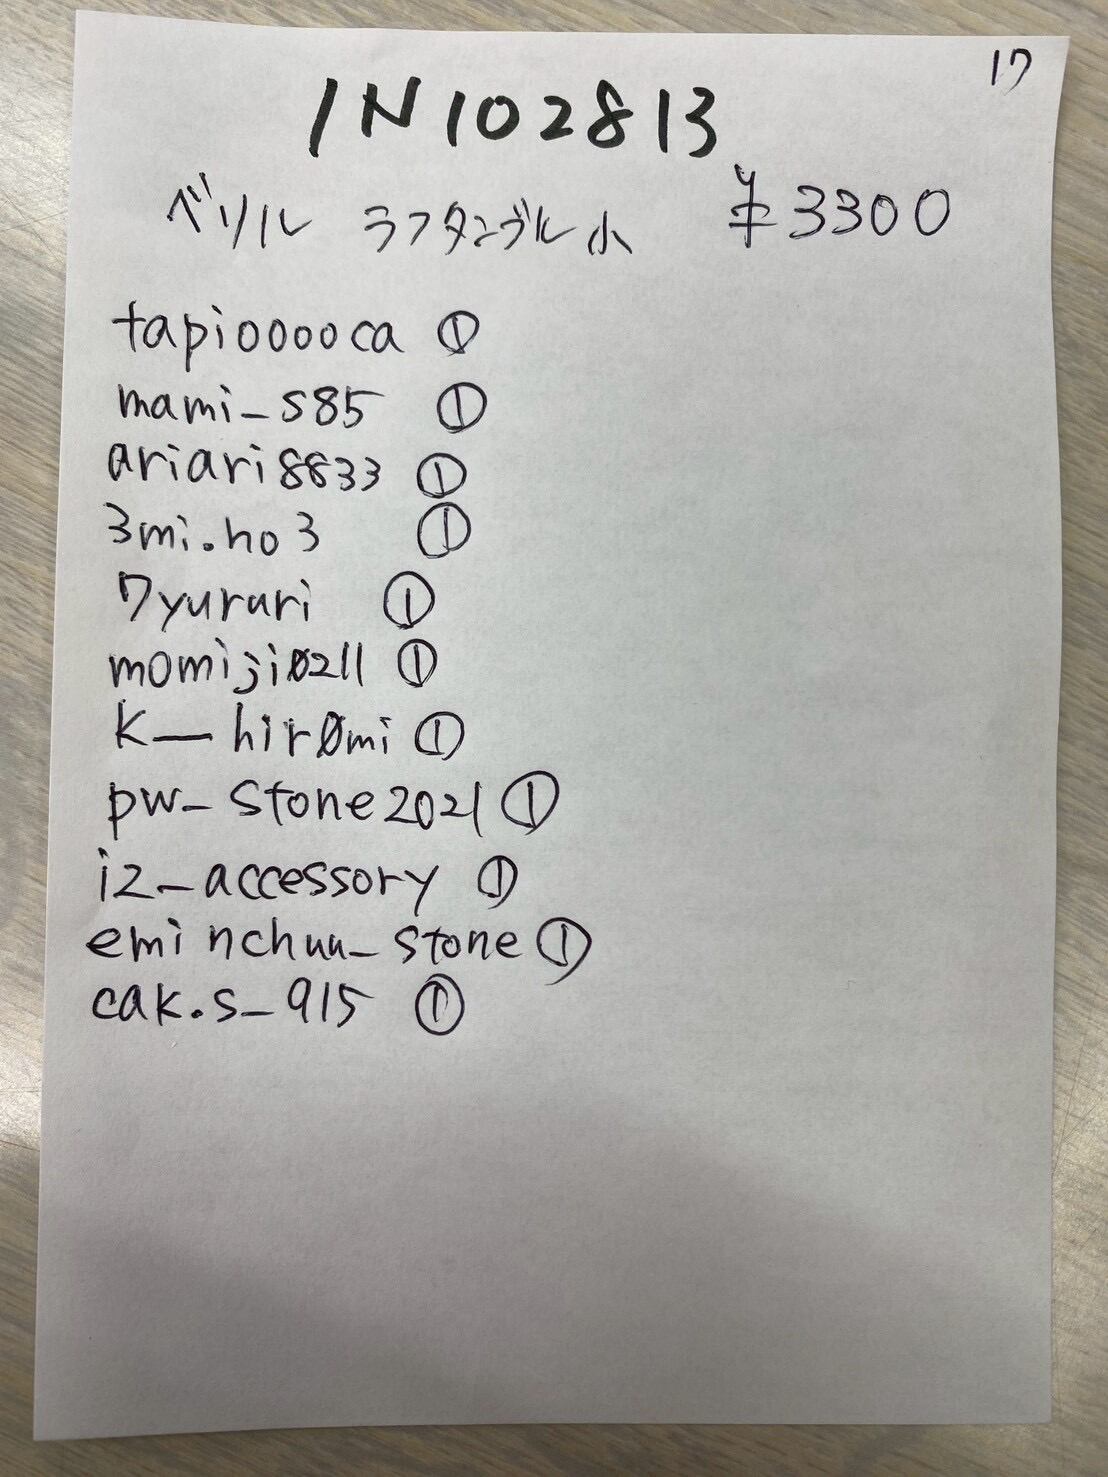 17
IN102813
ベリル ラフタンブル小 ¥3300
tapiooooca ①
mami_s85 ①
ariari8833 ①
3mi.ho3 ①
7yururi ①
momiji0211 ①
k__hir0mi ①
pw_stone2021 ①
iz_accessory ①
eminchuu_stone ①
cak.s_915 ①